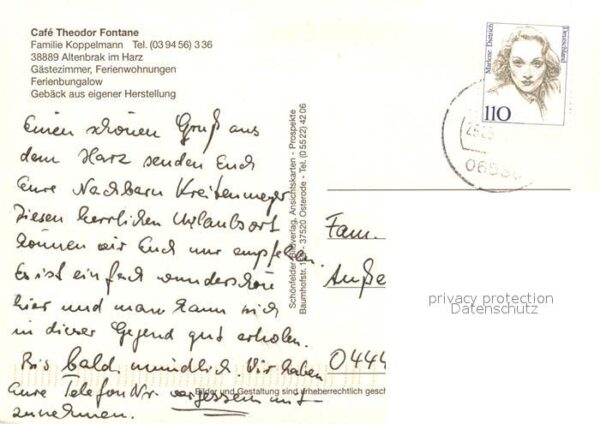 Café Theodor Fontane
Familie Koppelmann   Tel. (03 94 56) 3 36
38889 Altenbrak im Harz
Gästezimmer, Ferienwohnungen
Ferienbungalow
Gebäck aus eigener Herstellung
Einen schönen Gruß aus
dem Harz senden Euch
Eure Nachbarn Kreitenmeyer
Diesen herrlichen Urlaubsort
können wir Euch nur empfehlen
Es ist einfach wunderschön
hier und man kann sich
in dieser Gegend gut erholen.
Bis bald mündlich. Wir haben
Eure Telefon Nr. vergessen mit
zunehmen.
Schönfelder Bildverlag, Ansichtskarten - Prospekte
Baumhofstr. - 37520 Osterode - Tel. (0 55 22) 42 06
Bilder und Gestaltung sind urheberrechtlich gesch
Marlene Dietrich
Deutschland
110
Fam.
Auße
0444
privacy protection
Datenschutz